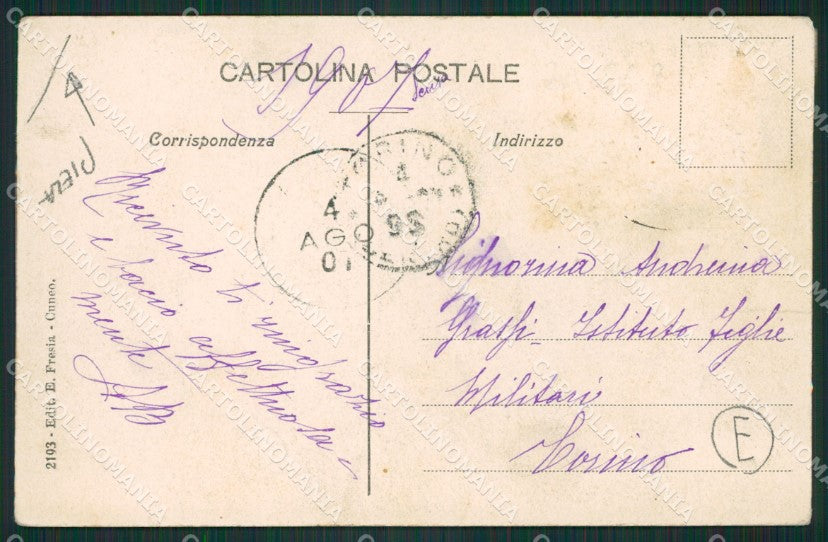 CARTOLINA POSTALE
1907
Corrispondenza
Indirizzo
PIEGA
Ricevuto ti ringrazio
e bacio affettuosa-
mente
TORINO
4
4
AGO
07
Signorina Andreina
Grassi - Istituto Figlie
Militari
Torino
E
2193 - Edit. E. Fresia - Cuneo.
CARTOLINOMANIA